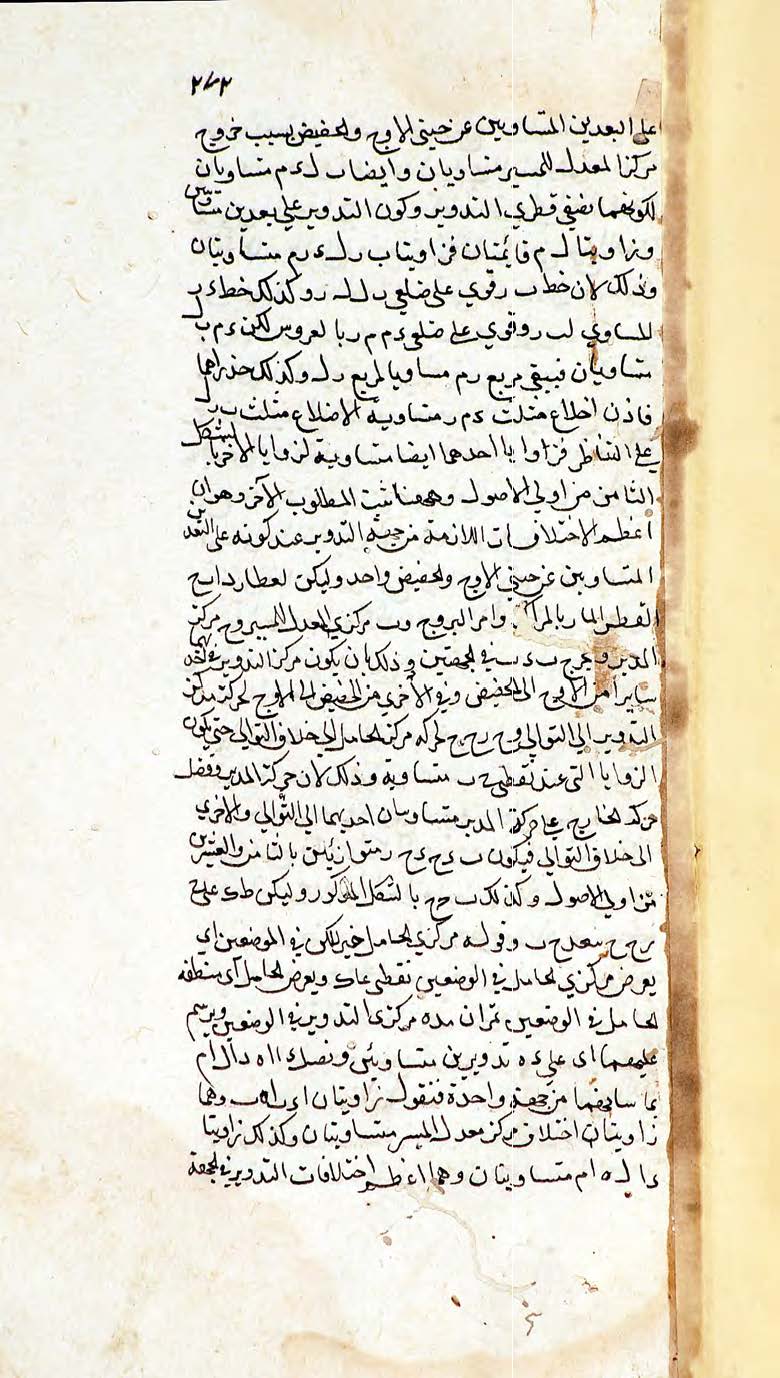 ٢٧٢
على البعدين المتساويين عن جنبي الاوج والحضيض بسبب خروج
مركز المعدل للمسير متساويان وايضا ب ل ء م متساويان
لكونهما نصفي قطري التدوير وكون التدوير على بعدين متساويين
وزاويتا ل م قائمتان فزاويتا ب ر ل ء ر م متساويتان
وذلك لان خط ب ر قوي على ضلعي ب ل ل ر وكذلك خط ء ر
المساوي لب ر قوي على ضلعي ء م م ر بالعروس لكن ء م ب ل
متساويان فيبقى مربع ر م مساويا لمربع ر ل وكذلك جذراهما
فاذن اضلاع مثلث ء م ر متساوية الاضلاع مثلث ب ر ل
على التناظر فزوايا احدهما ايضا متساوية لزوايا الاخر بالشكل
الثامن من اولى الاصول وههنا ثبت المطلوب الآخر وهو ان
اعظم الاختلافات اللازمة من جهة التدوير عند كونه على البعدين
المتساويين عن جنبي الاوج والحضيض واحد وليكن لعطارد ا ب ح
القطر المار بالمراكز و ا مركز البروج و ب مركز المعدل المسير و ح مركز
المدير ويخرج ب ء ب ه في الجهتين وذلك بان يكون مركز التدوير في احديهما
سايرا من الاوج الى الحضيض وفي الاخرى من الحضيض الى الاوج لحركة مركز
التدوير الى التوالي و ح ر ح ح لحركة مركز الحامل الى خلاف التوالي حتى يكون
الزوايا التي عند نقطتي ح ب متساوية وذلك لان حركة المدير وفضل
حركة الخارج على حركة المدير متساويان احديهما الى التوالي والاخرى
الى خلاف التوالي فيكون ب ء ح ر متوازيين بالثامن والعشرين
من اولى الاصول وكذلك ب ه ح ح بالشكل المذكور وليكن ط ك على ح
ر ح ح ببعد ح ب وقوله مركزي الحامل خبر لكن في الموضعين اي
يعرض مركزي الحامل في الوضعين نقطتي ط ك ويعرض الحامل اى منطقة
الحامل في الوضعين ثمران ء ه مركزي التدوير في الوضعين ويرسم
عليهما اى على ء ه تدويرين متساويين ونصل ء ا ا ه ا ل ا م
يماسانهما من جهة واحدة فنقول زاويتان ا ء ب ا ه ب وهما
زاويتان اختلاف مركز معدل المسير متساويتان وكذلك زاويتا
ء ا ل ه ا م متساويتان وهما اعظم اختلافات التدوير في الجهة